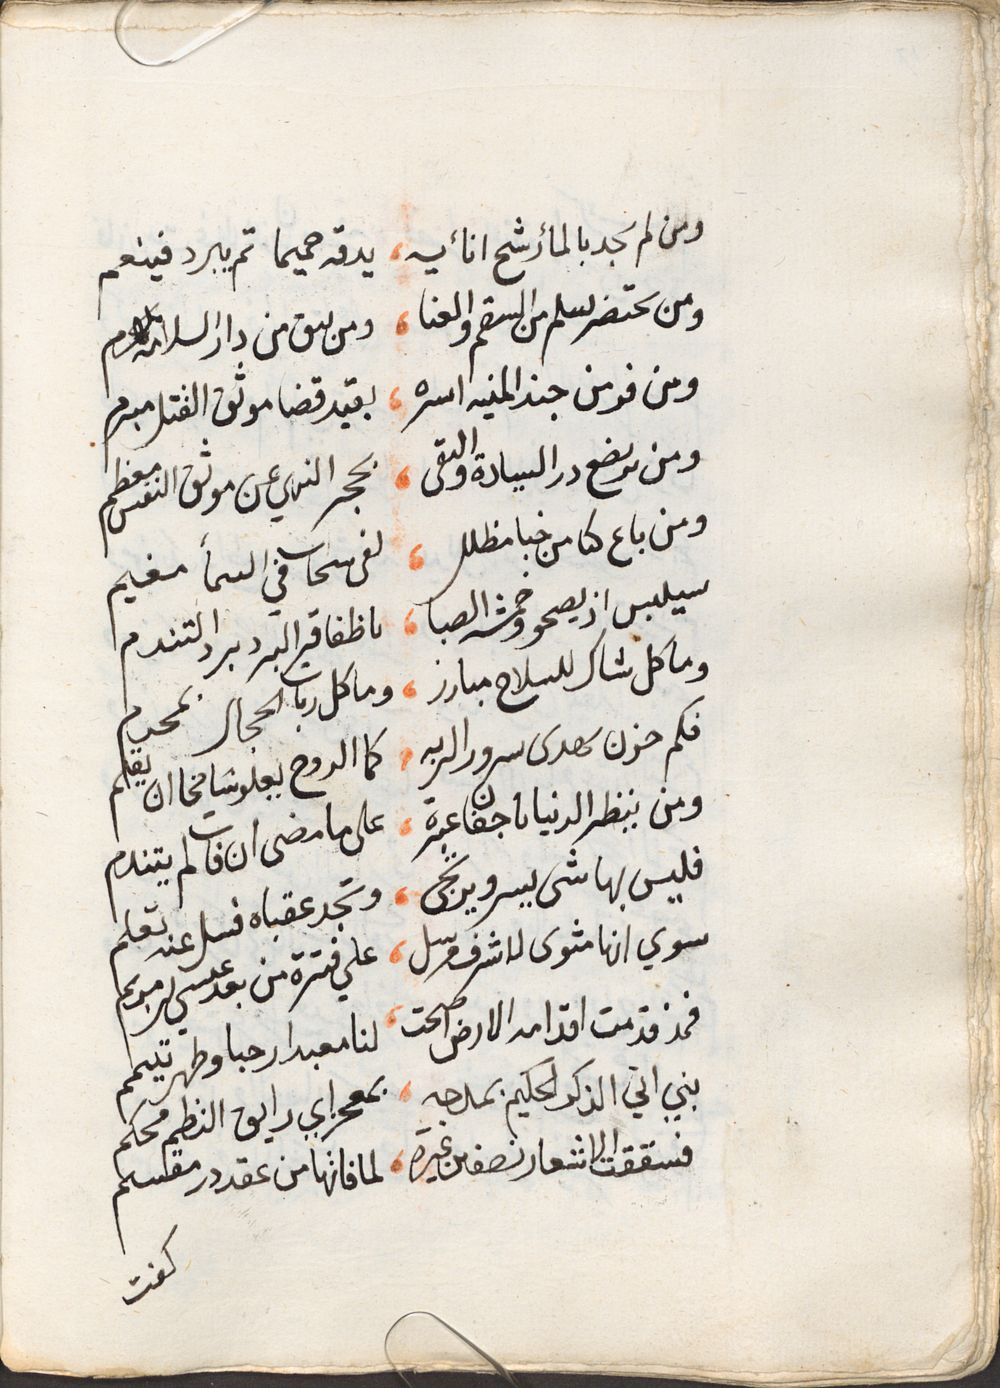 ومن لم يجد بالمأ رشح انائيه ، يدقه حميما ثم يبرد فيثعم
ومن يحتضر يسلم من السقم والعنا ، ومن يبق من دار السلامه
ومن فر من جند المنيه اسره ، بقيد قضا موثق الفتل مبرم
ومن يرضع در السيادة والتقى ، بحجر النهي عن موثق النفس معظم
ومن باع كنا من خبا مظلل ، لفى سحاب في السمأ مغيم
سيلبس اذ يصحو وخمشه الصبا ، باظفا قر البرد برد التندم
وما كل شاك للسلاح مبارز ، وما كل ربات الحجال بمحرم
فكم حزن يهدى سرور الربه ، كما الدوح يعلو شامخا ان يقلم
ومن ينظر الدنيا باجفان عبرة ، على ما مضى ان فات لم يتندم
فليس بها شى يسر ويرتجى ، وتجد عقباه فسل عنه تعلم
سوي انها مثوى لاشرف مرسل ، علي فترة من بعد عيسي ابن مريم
فمذ قدمت اقدامه الارض اصبحت ، لنا معبدا رحبا وطهر تيمم
بني اتي الذكر الحكيم بمدحه ، بمعجز اي رايق النظم محكم
فسققت الاشعار نصفين غيرة ، لما فاتها من عقد در مقسم
كفت